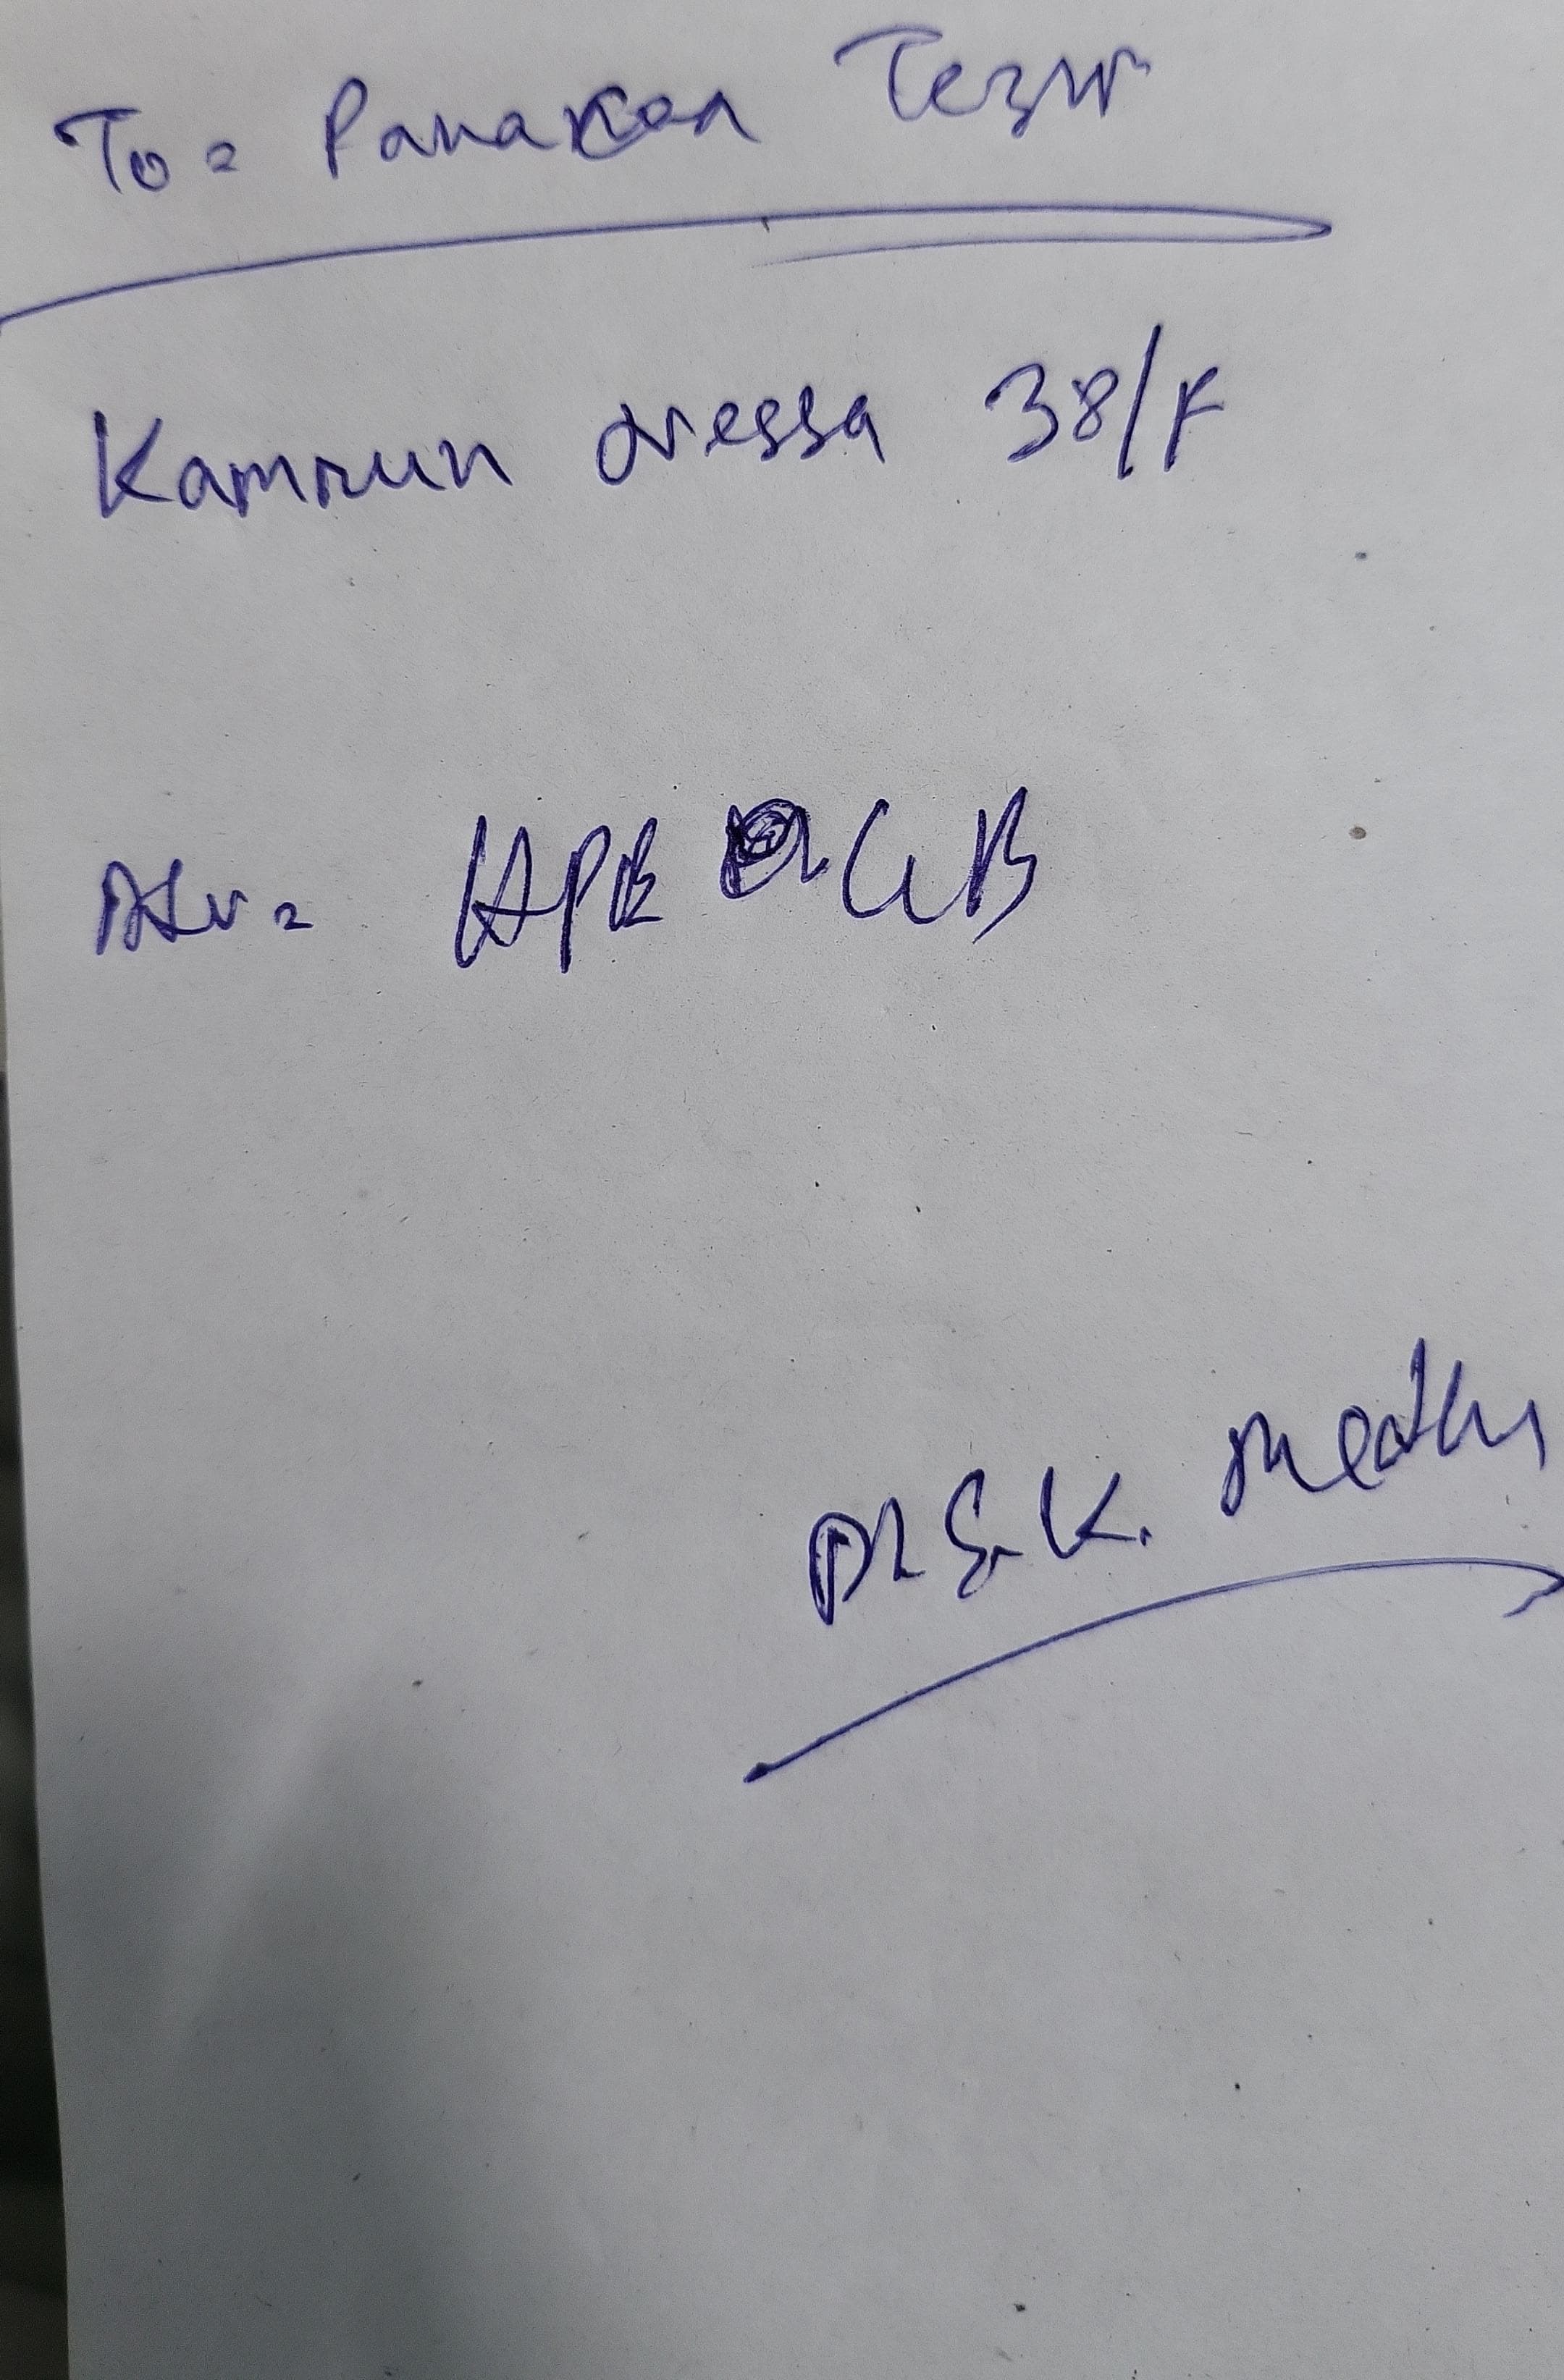 To = Panacea Tezpur
Kamrun Nessa 38/F
Adv = HPE GB
Dr S. K. Medhi